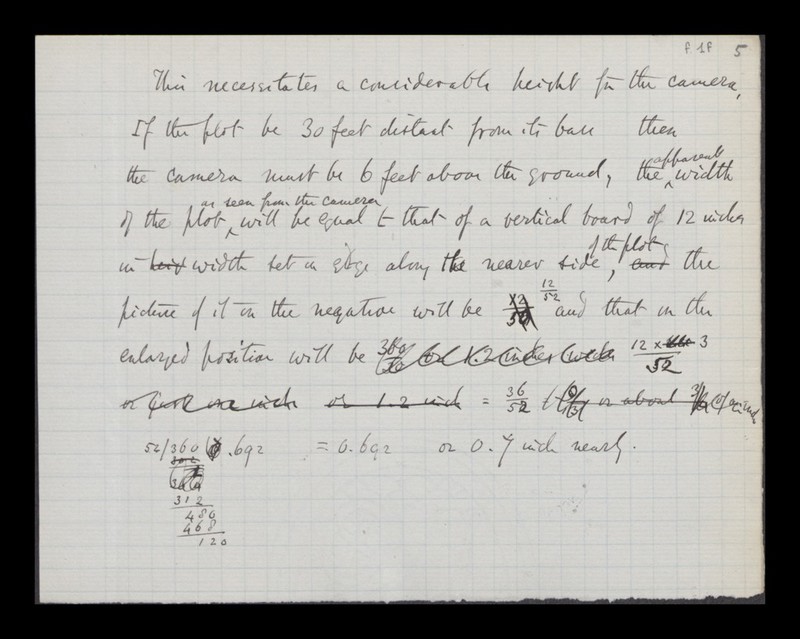 f. 1f 5
This necessitates a considerable height for the camera,
If the plot be 30 feet distant from its base then
the camera must be 6 feet above the ground, the apparent width
of the plot as seen from the camera will be equal to that of a vertical board of 12 inches
in width set on edge along the nearer side of the plot, and the
picture of it on the negative will be 12/52 and that on the
enlarged position will be 12 x 3 / 52
or or 1.2 inch = 36/52 or about
52/360 .692 = 0.692 or 0.7 inch nearly.
312
480
468
120